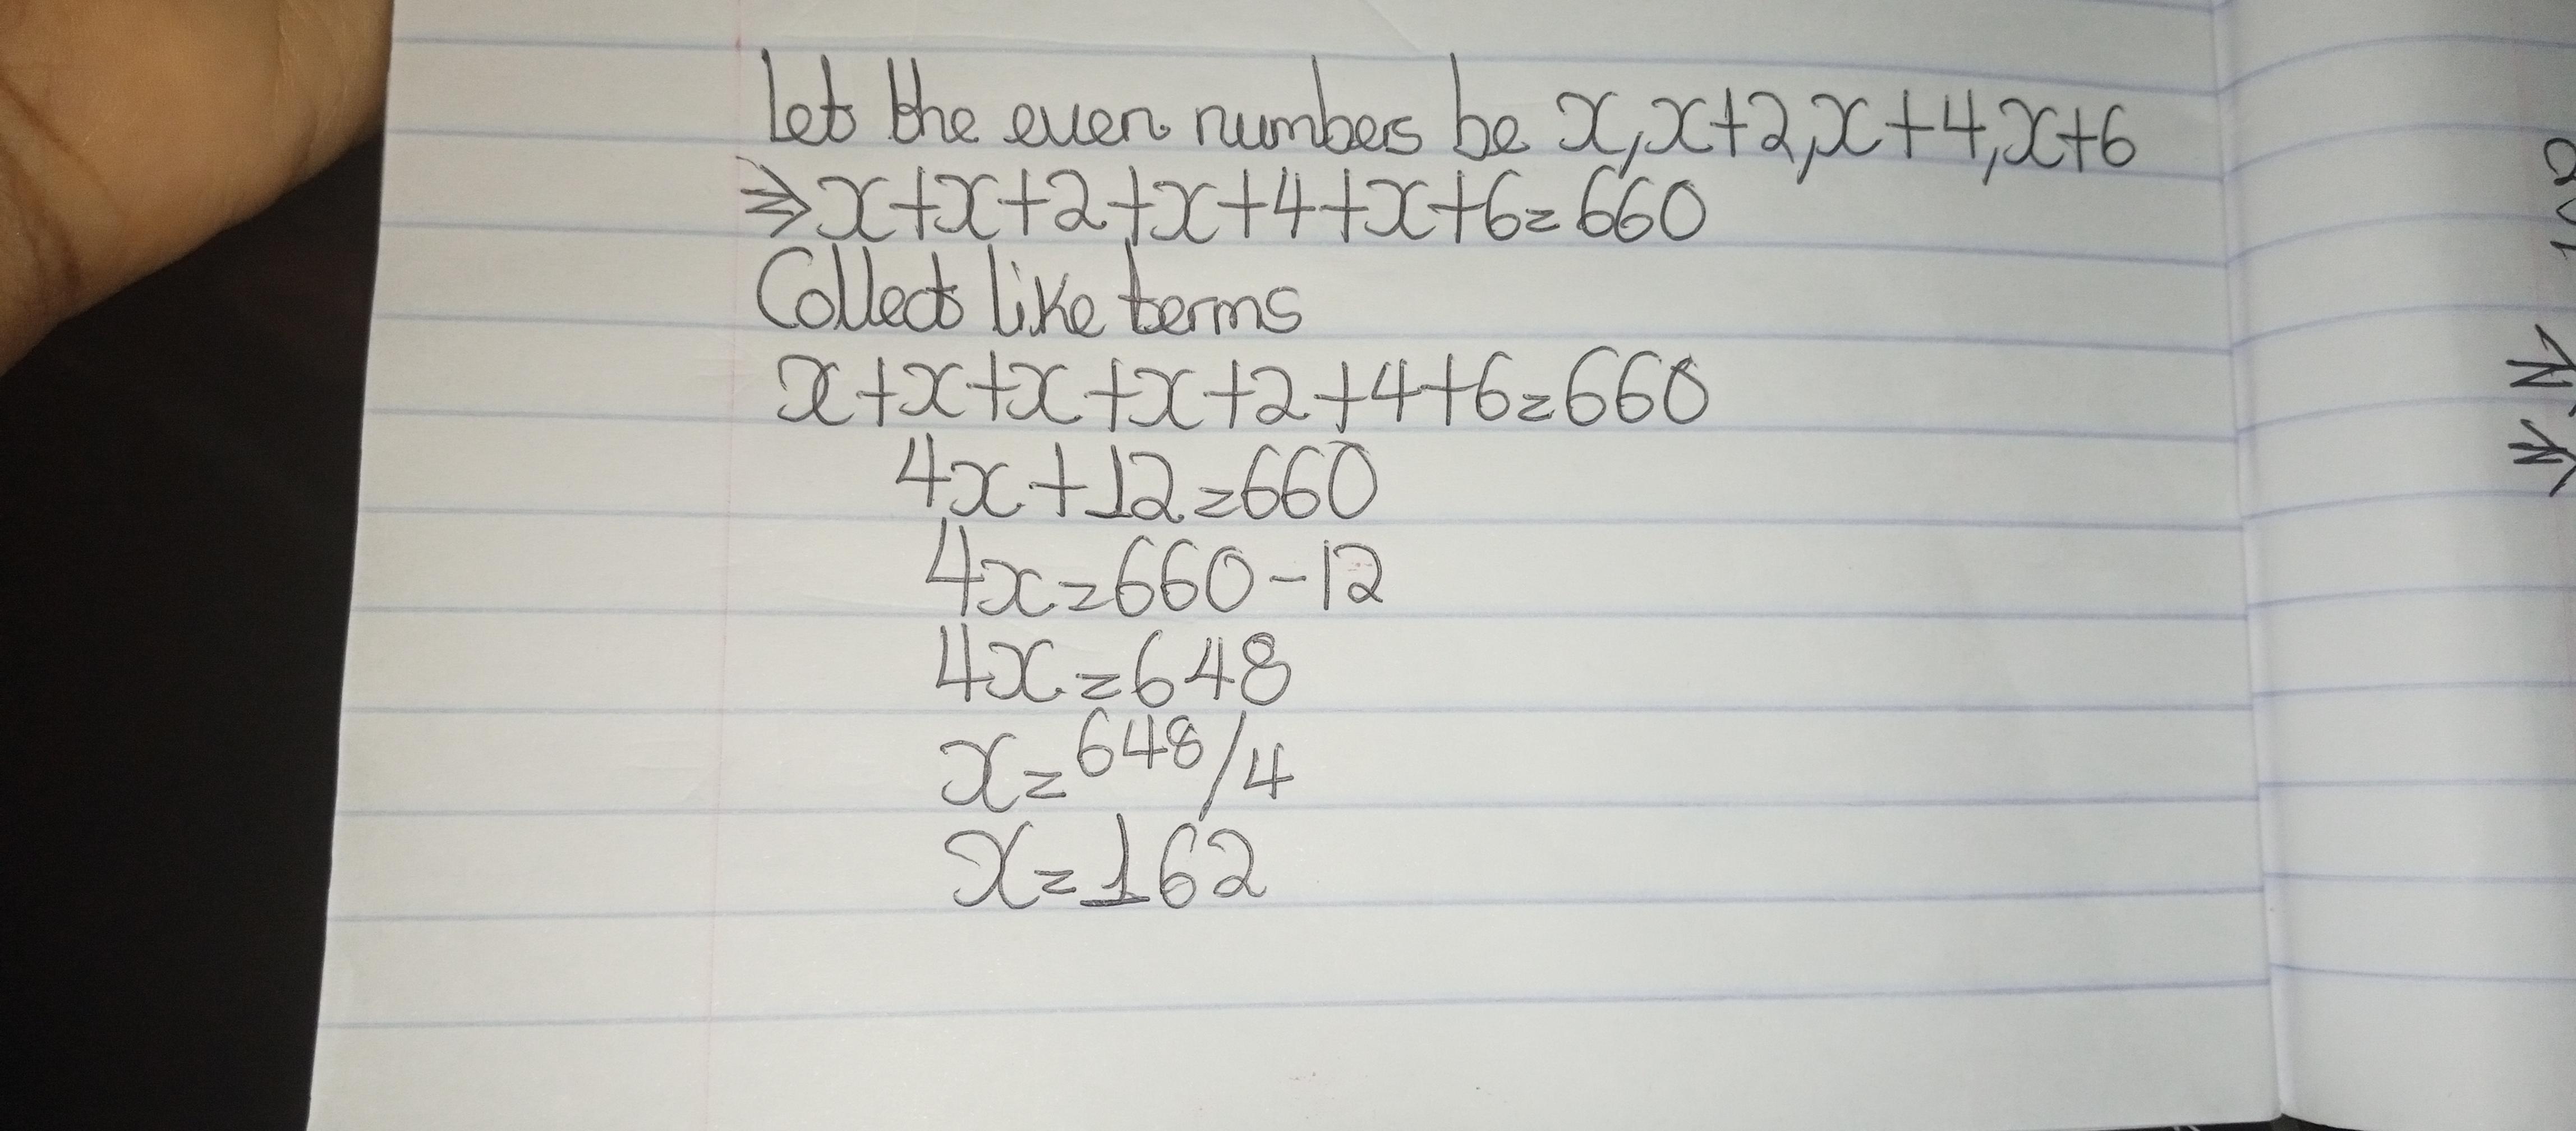 Let the even numbers be x, x+2, x+4, x+6
⇒ x+x+2+x+4+x+6=660
Collect like terms
x+x+x+x+2+4+6=660
4x+12=660
4x=660-12
4x=648
x=648/4
x=162